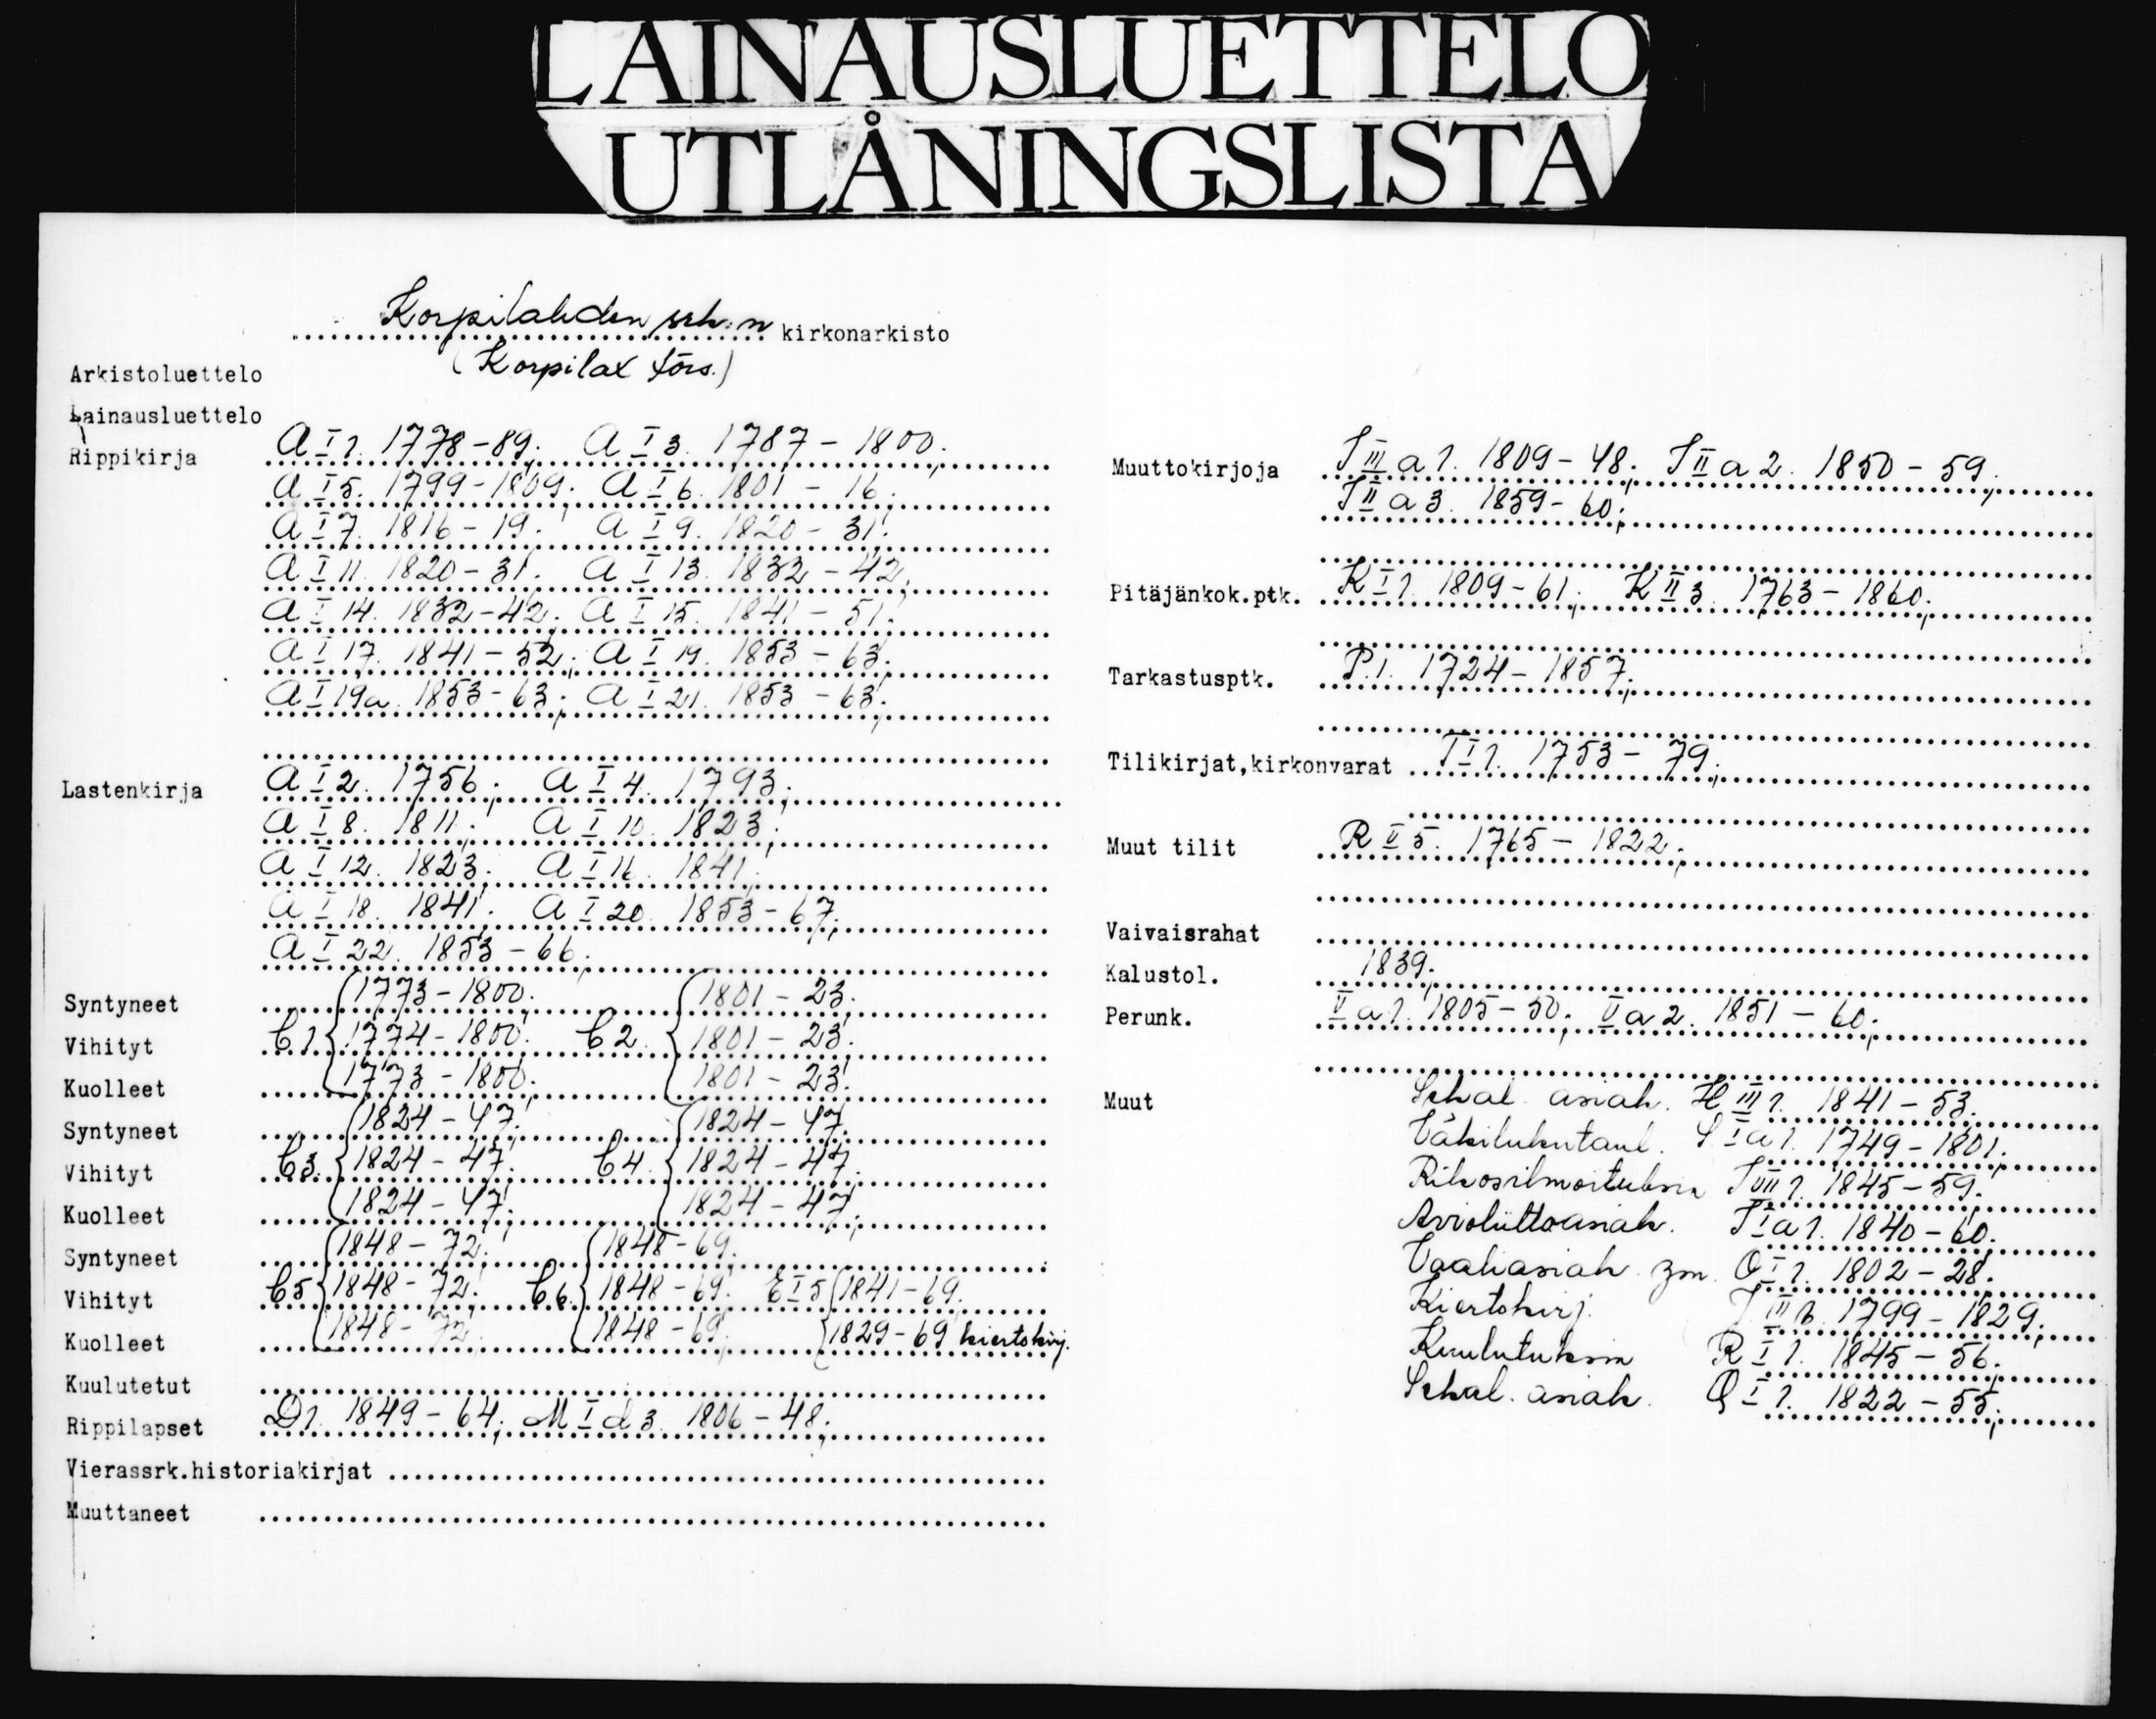 LAINAUSLUETTELO
UTLÅNINGSLISTA
Korpilahden srk:n kirkonarkisto
(Korpilax förs.)
Arkistoluettelo
Lainausluettelo
Rippikirja A I 1. 1778-89; A I 3. 1787-1800;
A I 5. 1799-1809; A I 6. 1801-16;
A I 7. 1816-19; A I 9. 1820-31;
A I 11. 1820-31; A I 13. 1832-42;
A I 14. 1832-42; A I 15. 1841-51;
A I 17. 1841-52; A I 19. 1853-63;
A I 19a. 1853-63; A I 21. 1853-63;
Lastenkirja A I 2. 1756; A I 4. 1793;
A I 8. 1811; A I 10. 1823;
A I 12. 1823; A I 16. 1841;
A I 18. 1841; A I 20. 1853-67;
A I 22. 1853-66;
Syntyneet 1773-1800; 1801-23;
Vihityt C1 1774-1800; C2. 1801-23;
Kuolleet 1773-1800; 1801-23;
Syntyneet 1824-47; 1824-47;
Vihityt C3. 1824-47; C4. 1824-47;
Kuolleet 1824-47; 1824-47;
Syntyneet 1848-72; 1848-69;
Vihityt C5 1848-72; C6. 1848-69; E I 5 1841-69;
Kuolleet 1848-72; 1848-69; 1829-69 kiertokirj.
Kuulutetut
Rippilapset D1. 1849-64; M I d 3. 1806-48;
Vierassrk.historiakirjat
Muuttaneet
Muuttokirjoja J III a 1. 1809-48; J II a 2. 1850-59;
J II a 3. 1859-60;
Pitäjänkok.ptk. K I 1. 1809-61; K II 3. 1763-1860;
Tarkastusptk. P.1. 1724-1857;
Tilikirjat,kirkonvarat T I 1. 1753-79;
Muut tilit R II 5. 1765-1822;
Vaivaisrahat
Kalustol. 1839;
Perunk. V a 1. 1805-50; V a 2. 1851-60;
Muut Sekal. asiak. H III 1. 1841-53;
Väkilukutaul. I a 1. 1749-1801;
Rikosilmoituksia J VII 1. 1845-59;
Avioliittoasiak. J I a 1. 1840-60;
Vaaliasiak. ym. O I 1. 1802-28;
Kiertokirj. J III b. 1799-1829;
Kuulutuksia R I 1. 1845-56;
Sekal. asiak. Q I 1. 1822-55;